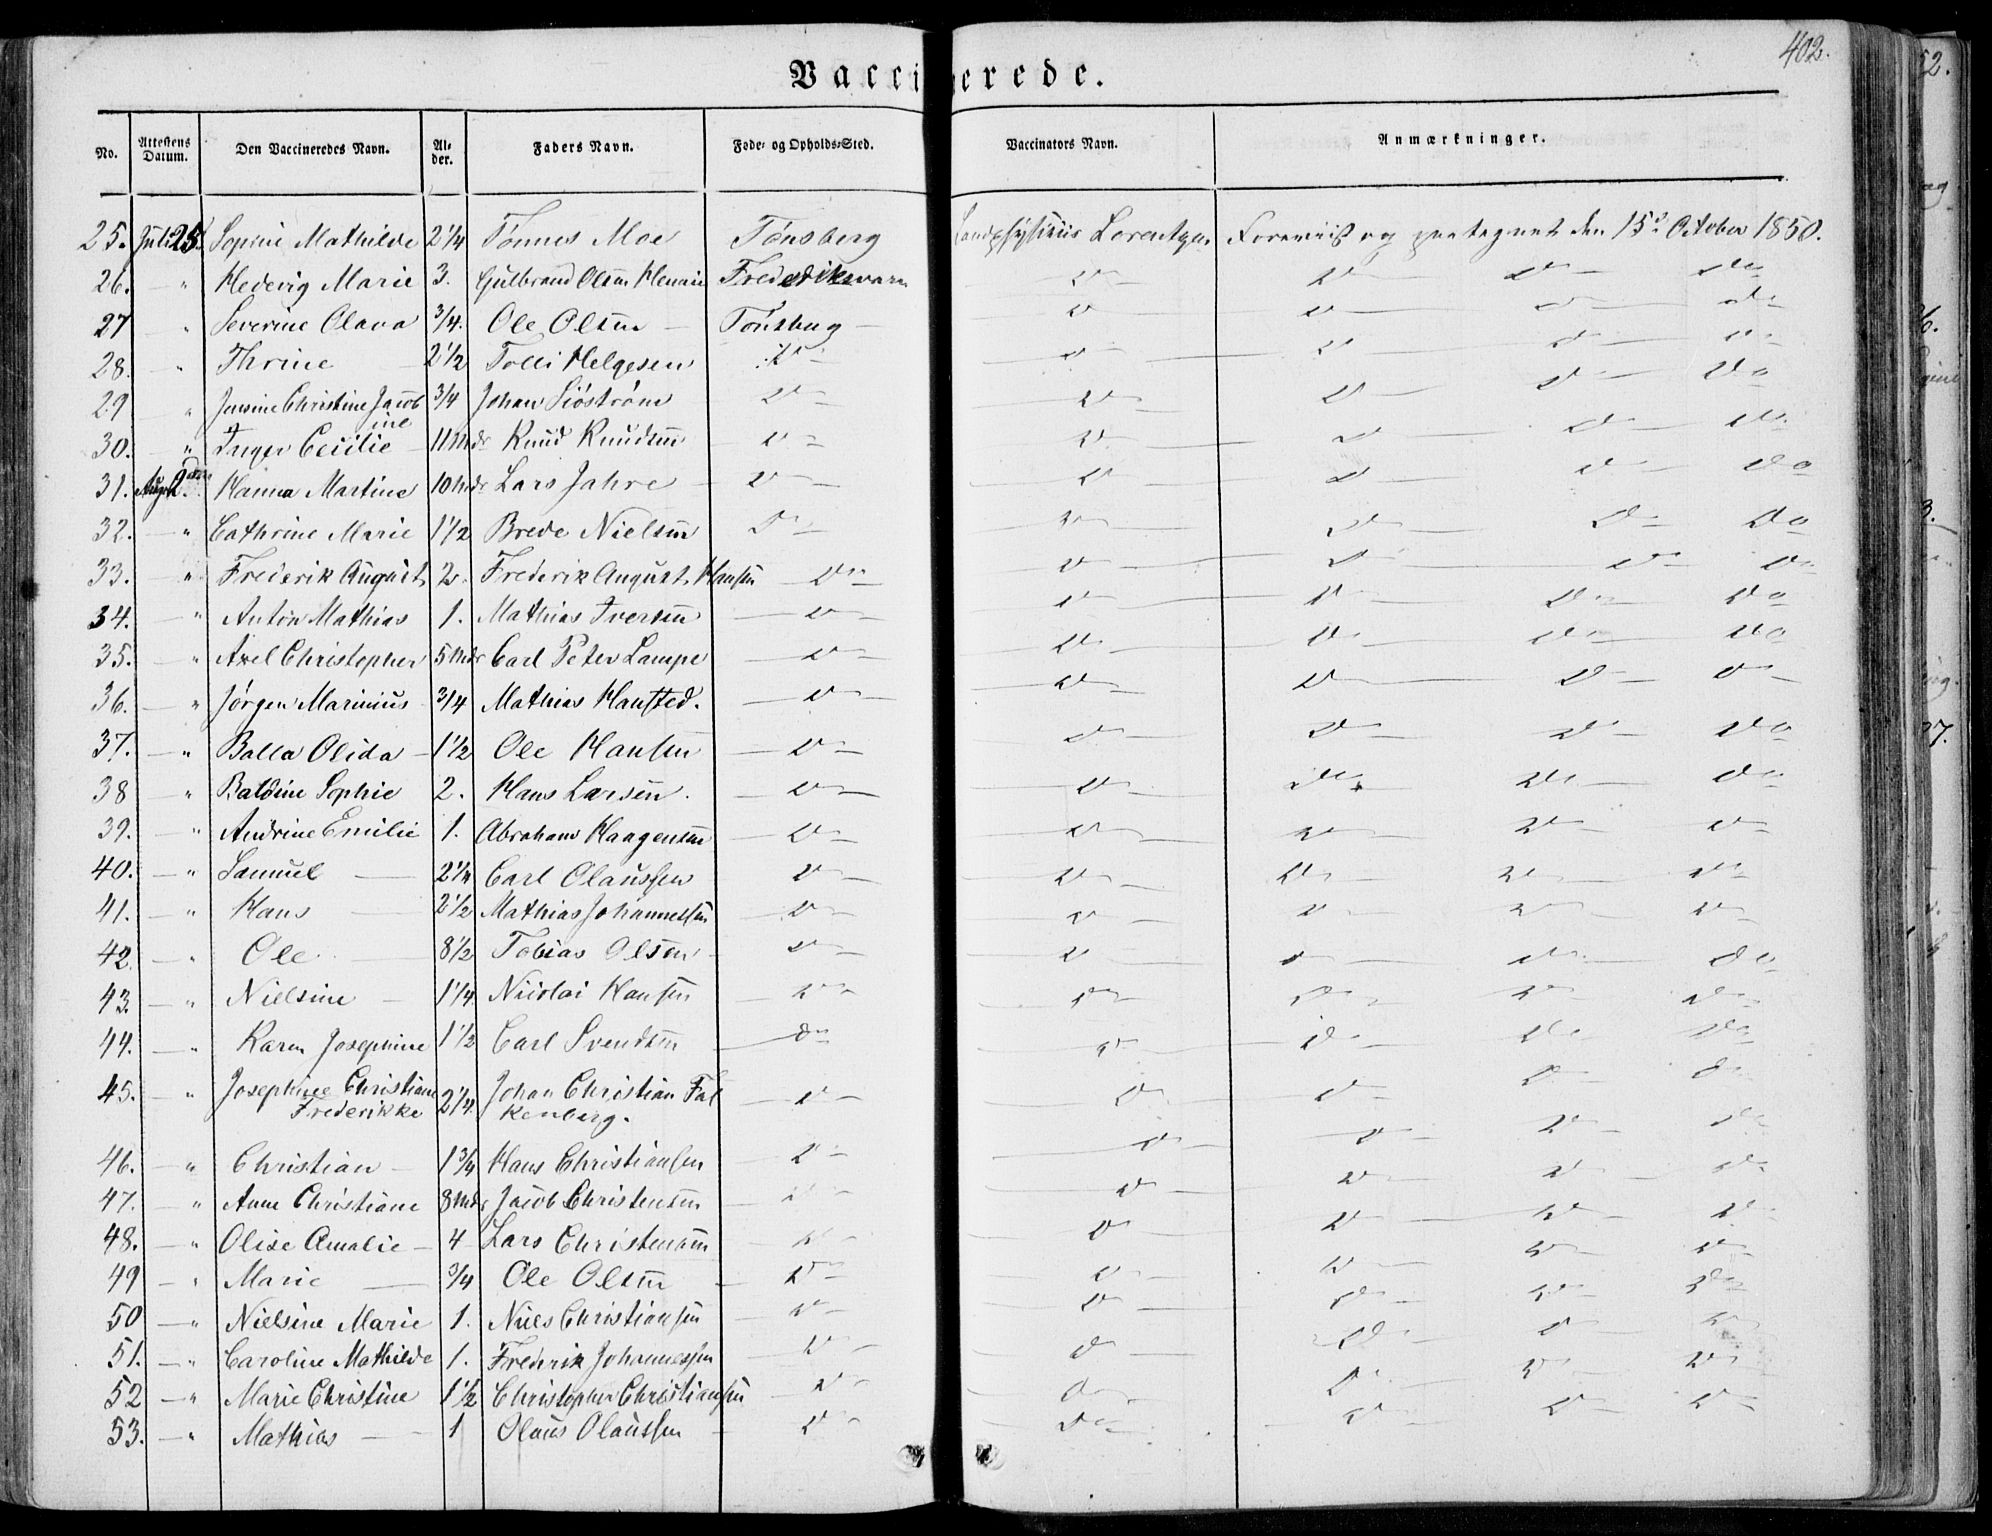 402.
Vaccinerede.
No. Attestens Datum. Den Vaccineredes Navn. Alder. Faders Navn. Føde- og Opholds-Sted. Vaccinators Navn. Anmærkninger.
25. Juli 25. Sophie Mathilde 2¼ Tønnes Moe Tønsberg Landphysicus Lorentzen Foreviist og paategnet den 15de October 1850.
26. — " Hedevig Marie 3. Gulbrand Olsen Frederiksværn Do Do Do Do
27 — " Severine Olava ¾. Ole Olsen — Tønsberg — Do Do Do Do
28. — " Thrine — 2½ Tolli Helgesen Do Do Do Do Do
29 — " Jensine Christine Jacob
ine ¾ Johan Siöström Do Do Do Do Do
30. — " Inger Cecilie — 11 Mdr Knud Knudsen Do Do Do Do Do
31. August 2den Hanna Martine 10 Mdr Lars Jahre — Do Do Do Do Do
32. — " Cathrine Marie 1½ Brede Nielsen Do Do Do Do Do
33. — " Frederik August 2. Frederik August Hansen — Do Do Do Do Do
34. — " Anton Mathias 1. Mathias Iversen — Do Do Do Do Do
35. — " Axel Christopher 5 Mdr Carl Peter Lampe — Do Do Do Do Do
36. — " Jörgen Marinius ¾ Mathias Hansted. — Do Do Do Do Do
37. — " Balla Olida — 1½ Ole Hansen — Do Do Do Do Do
38 — " Baldine Sophie 2. Hans Larsen. — Do Do Do Do Do
39. — " Andrine Emilie 1. Abraham Haagensen — Do Do Do Do Do
40. — " Samuel — 2¼ Carl Olaussen — Do Do Do Do Do
41. — " Hans — 2½ Mathias Johannessen — Do Do Do Do Do
42. — " Ole — 8½ Tobias Olsen — Do Do Do Do Do
43. — " Nielsine — 1¼. Nicolai Hansen — Do Do Do Do Do
44. — " Karen Josephine 1½ Carl Svendsen — do Do Do Do Do
45. — " Josephine Christiane 2¼. Johan Christian Fal — Do Do Do Do Do
Frederikke kenberg.
46. — " Christian — 1¾ Hans Christiansen — Do Do Do Do Do
47. — " Anne Christiane 8 Mdr Jacob Christensen — Do Do Do Do Do
48. — " Olise Amalie — 4 Lars Christensen — Do Do Do Do Do
49 — " Marie — ¾ Ole Olsen — Do Do Do Do Do
50 — " Nielsine Marie 1. Niels Christiansen — Do Do Do Do Do
51. — " Caroline Mathilde 1. Frederik Johannessen — Do Do Do Do Do
52 — " Marie Christine 1½ Christopher Christiansen Do Do Do Do Do
53. — " Mathias — 1 Olaus Olaussen — Do Do Do Do Do